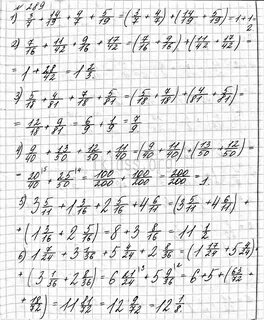 № 289
1) 3/7 + 14/19 + 4/7 + 5/19 = (3/7 + 4/7) + (14/19 + 5/19) = 1 + 1 =
2
2) 7/16 + 11/42 + 9/16 + 17/42 = (7/16 + 9/16) + (11/42 + 17/42) =
= 1 + 28/42 = 1 2/3.
3) 5/18 + 4/81 + 7/18 + 5/81 = (5/18 + 7/18) + (4/81 + 5/81) =
= 12/18 + 9/81 = 6/9 + 1/9 = 7/9
4) 9/40 + 13/50 + 12/50 + 11/40 = (9/40 + 11/40) + (13/50 + 12/50) =
= 20/40 + 25/50 = 100/200 + 100/200 = 200/200 = 1.
5) 3 5/11 + 1 3/16 + 2 5/16 + 4 6/11 = (3 5/11 + 4 6/11) +
+ (1 3/16 + 2 5/16) = 8 + 3 8/16 = 11 1/2
6) 1 17/24 + 3 1/36 + 5 4/24 + 2 8/36 = (1 17/24 + 5 4/24) +
+ (3 1/36 + 2 8/36) = 6 21/24 + 5 9/36 = 6 + 5 + (63/72 +
+ 18/72) = 11 81/72 = 12 9/72 = 12 1/8.